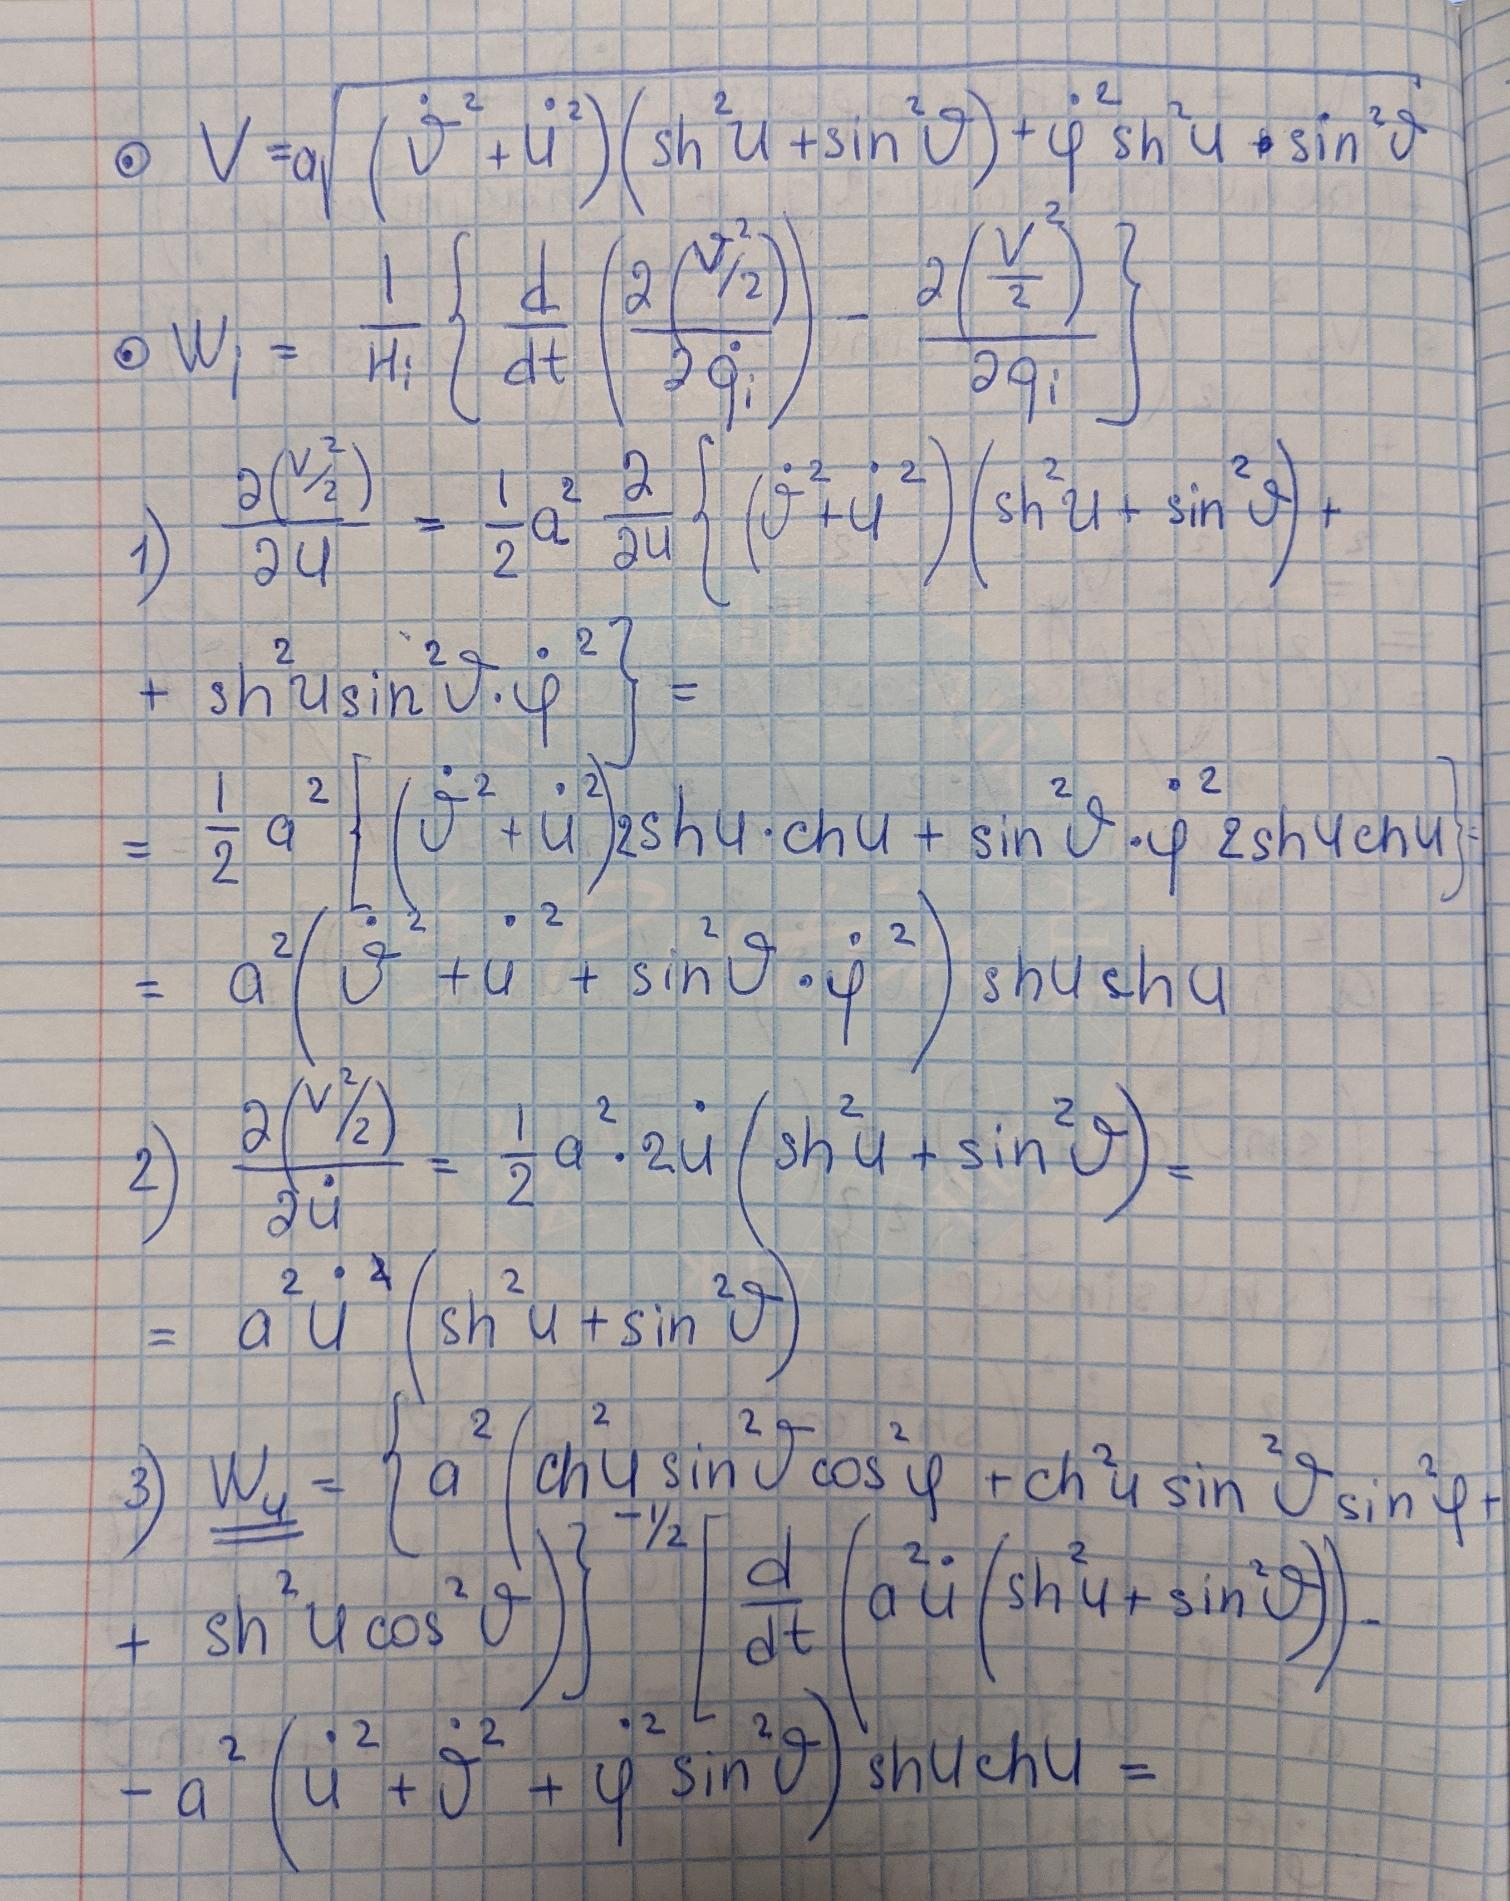 ⊙ V = a√((ϑ̇² + u̇²)(sh²u + sin²ϑ) + φ̇² sh²u · sin²ϑ)
⊙ W_i = 1/H_i { d/dt (∂(V²/2)/∂q̇_i) − ∂(V²/2)/∂q_i }
1) ∂(V²/2)/∂u = 1/2 a² ∂/∂u { (ϑ̇² + u̇²)(sh²u + sin²ϑ) +
+ sh²u sin²ϑ · φ̇² } =
= 1/2 a² { (ϑ̇² + u̇²) 2shu · chu + sin²ϑ · φ̇² 2shuchu } =
= a² (ϑ̇² + u̇² + sin²ϑ · φ̇²) shu shu
2) ∂(V²/2)/∂u̇ = 1/2 a² · 2u̇ (sh²u + sin²ϑ) =
= a² u̇ (sh²u + sin²ϑ)
3) W_u = { a² (ch²u sin²ϑ cos²φ + ch²u sin²ϑ sin²φ +
+ sh²u cos²ϑ) }^(−1/2) [ d/dt (a² u̇ (sh²u + sin²ϑ)) −
− a² (u̇² + ϑ̇² + φ̇² sin²ϑ) shuchu =